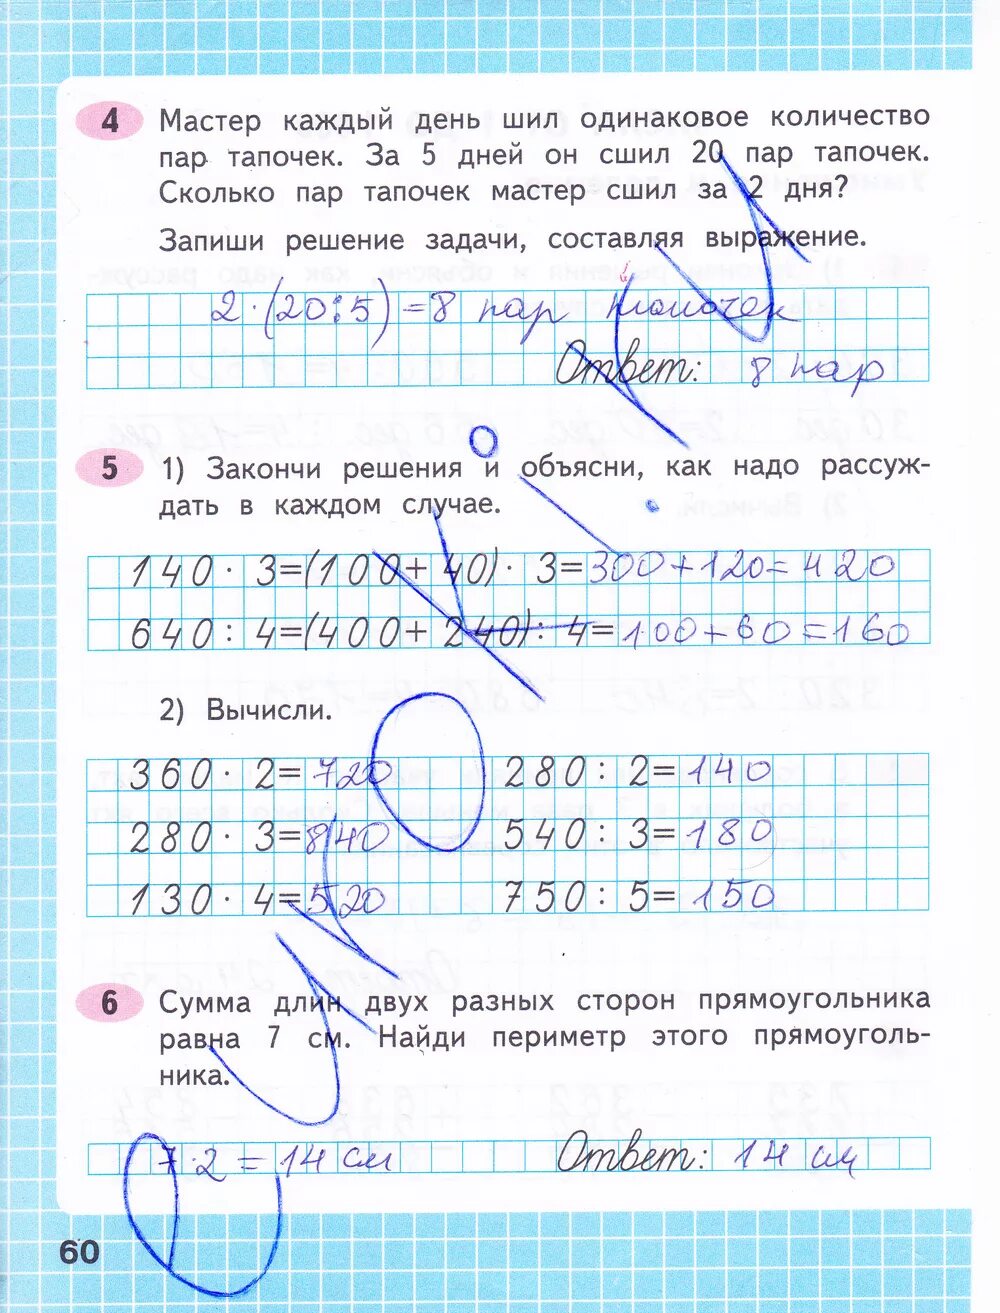 4 Мастер каждый день шил одинаковое количество
пар тапочек. За 5 дней он сшил 20 пар тапочек.
Сколько пар тапочек мастер сшил за 2 дня?
Запиши решение задачи, составляя выражение.
2·(20:5)=8 пар тапочек
Ответ: 8 пар
5 1) Закончи решения и объясни, как надо рассуж-
дать в каждом случае.
140·3=(100+40)·3=300+120=420
640:4=(400+240):4=100+60=160
2) Вычисли.
360·2=720 280:2=140
280·3=840 540:3=180
130·4=520 750:5=150
6 Сумма длин двух разных сторон прямоугольника
равна 7 см. Найди периметр этого прямоуголь-
ника.
7·2=14 см Ответ: 14 см
60